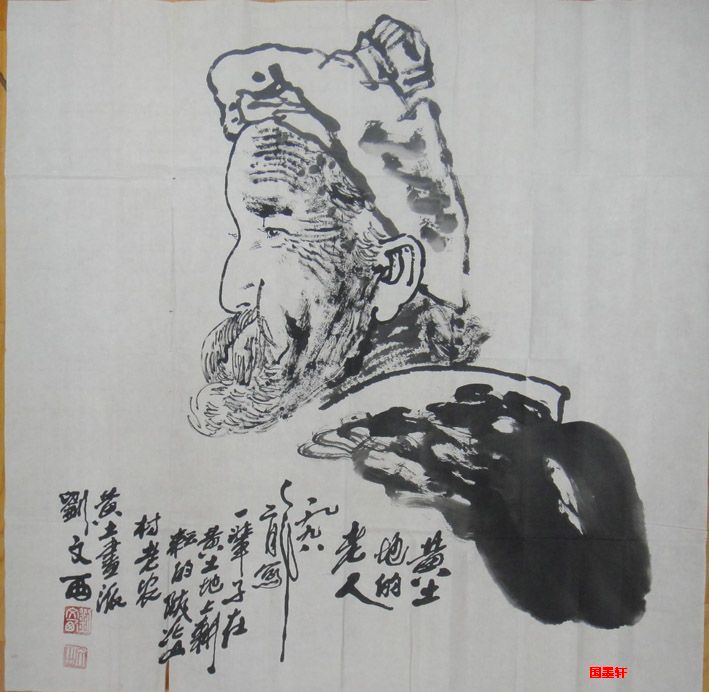 黄土
地的
老人
一九九八
一辈子在
黄土地上耕
耘的陕北
村老农
黄土画派
劉文西
国墨轩